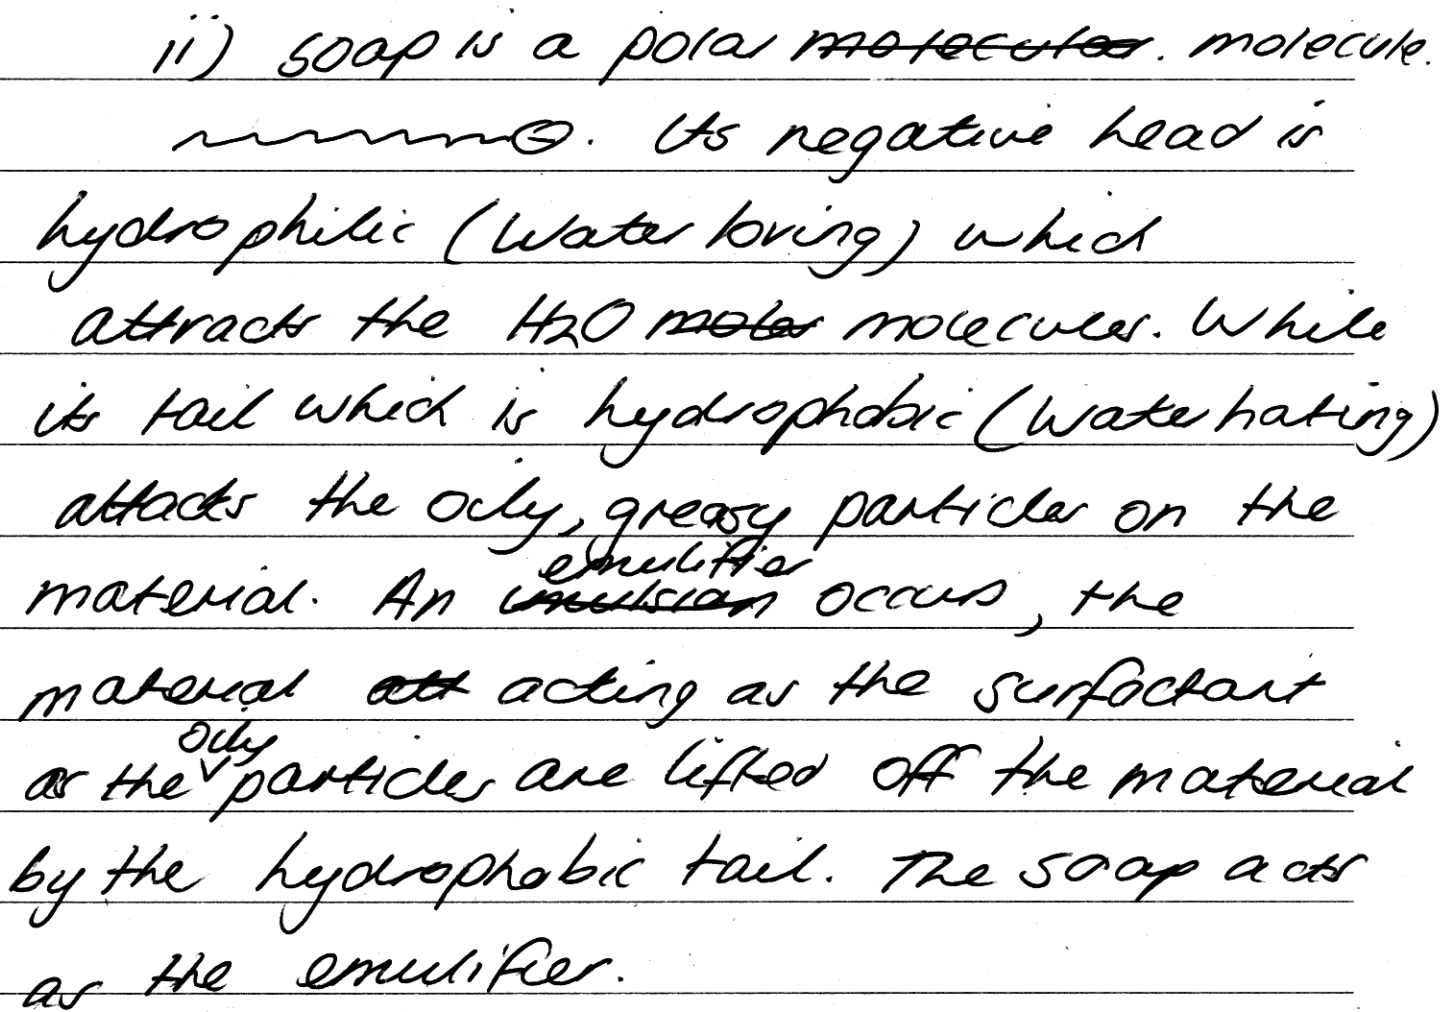 ii) soap is a polar molecular. molecule.
. Its negative head is
hydrophilic (Water loving) which
attracts the H2O moles molecules. While
its tail which is hydrophobic (Water hating)
attacks the oily, greasy particles on the
emulifier
material. An imulsion occurs, the
material att acting as the surfactant
oily
as the particles are lifted off the material
by the hydrophobic tail. The soap acts
as the emulifier.